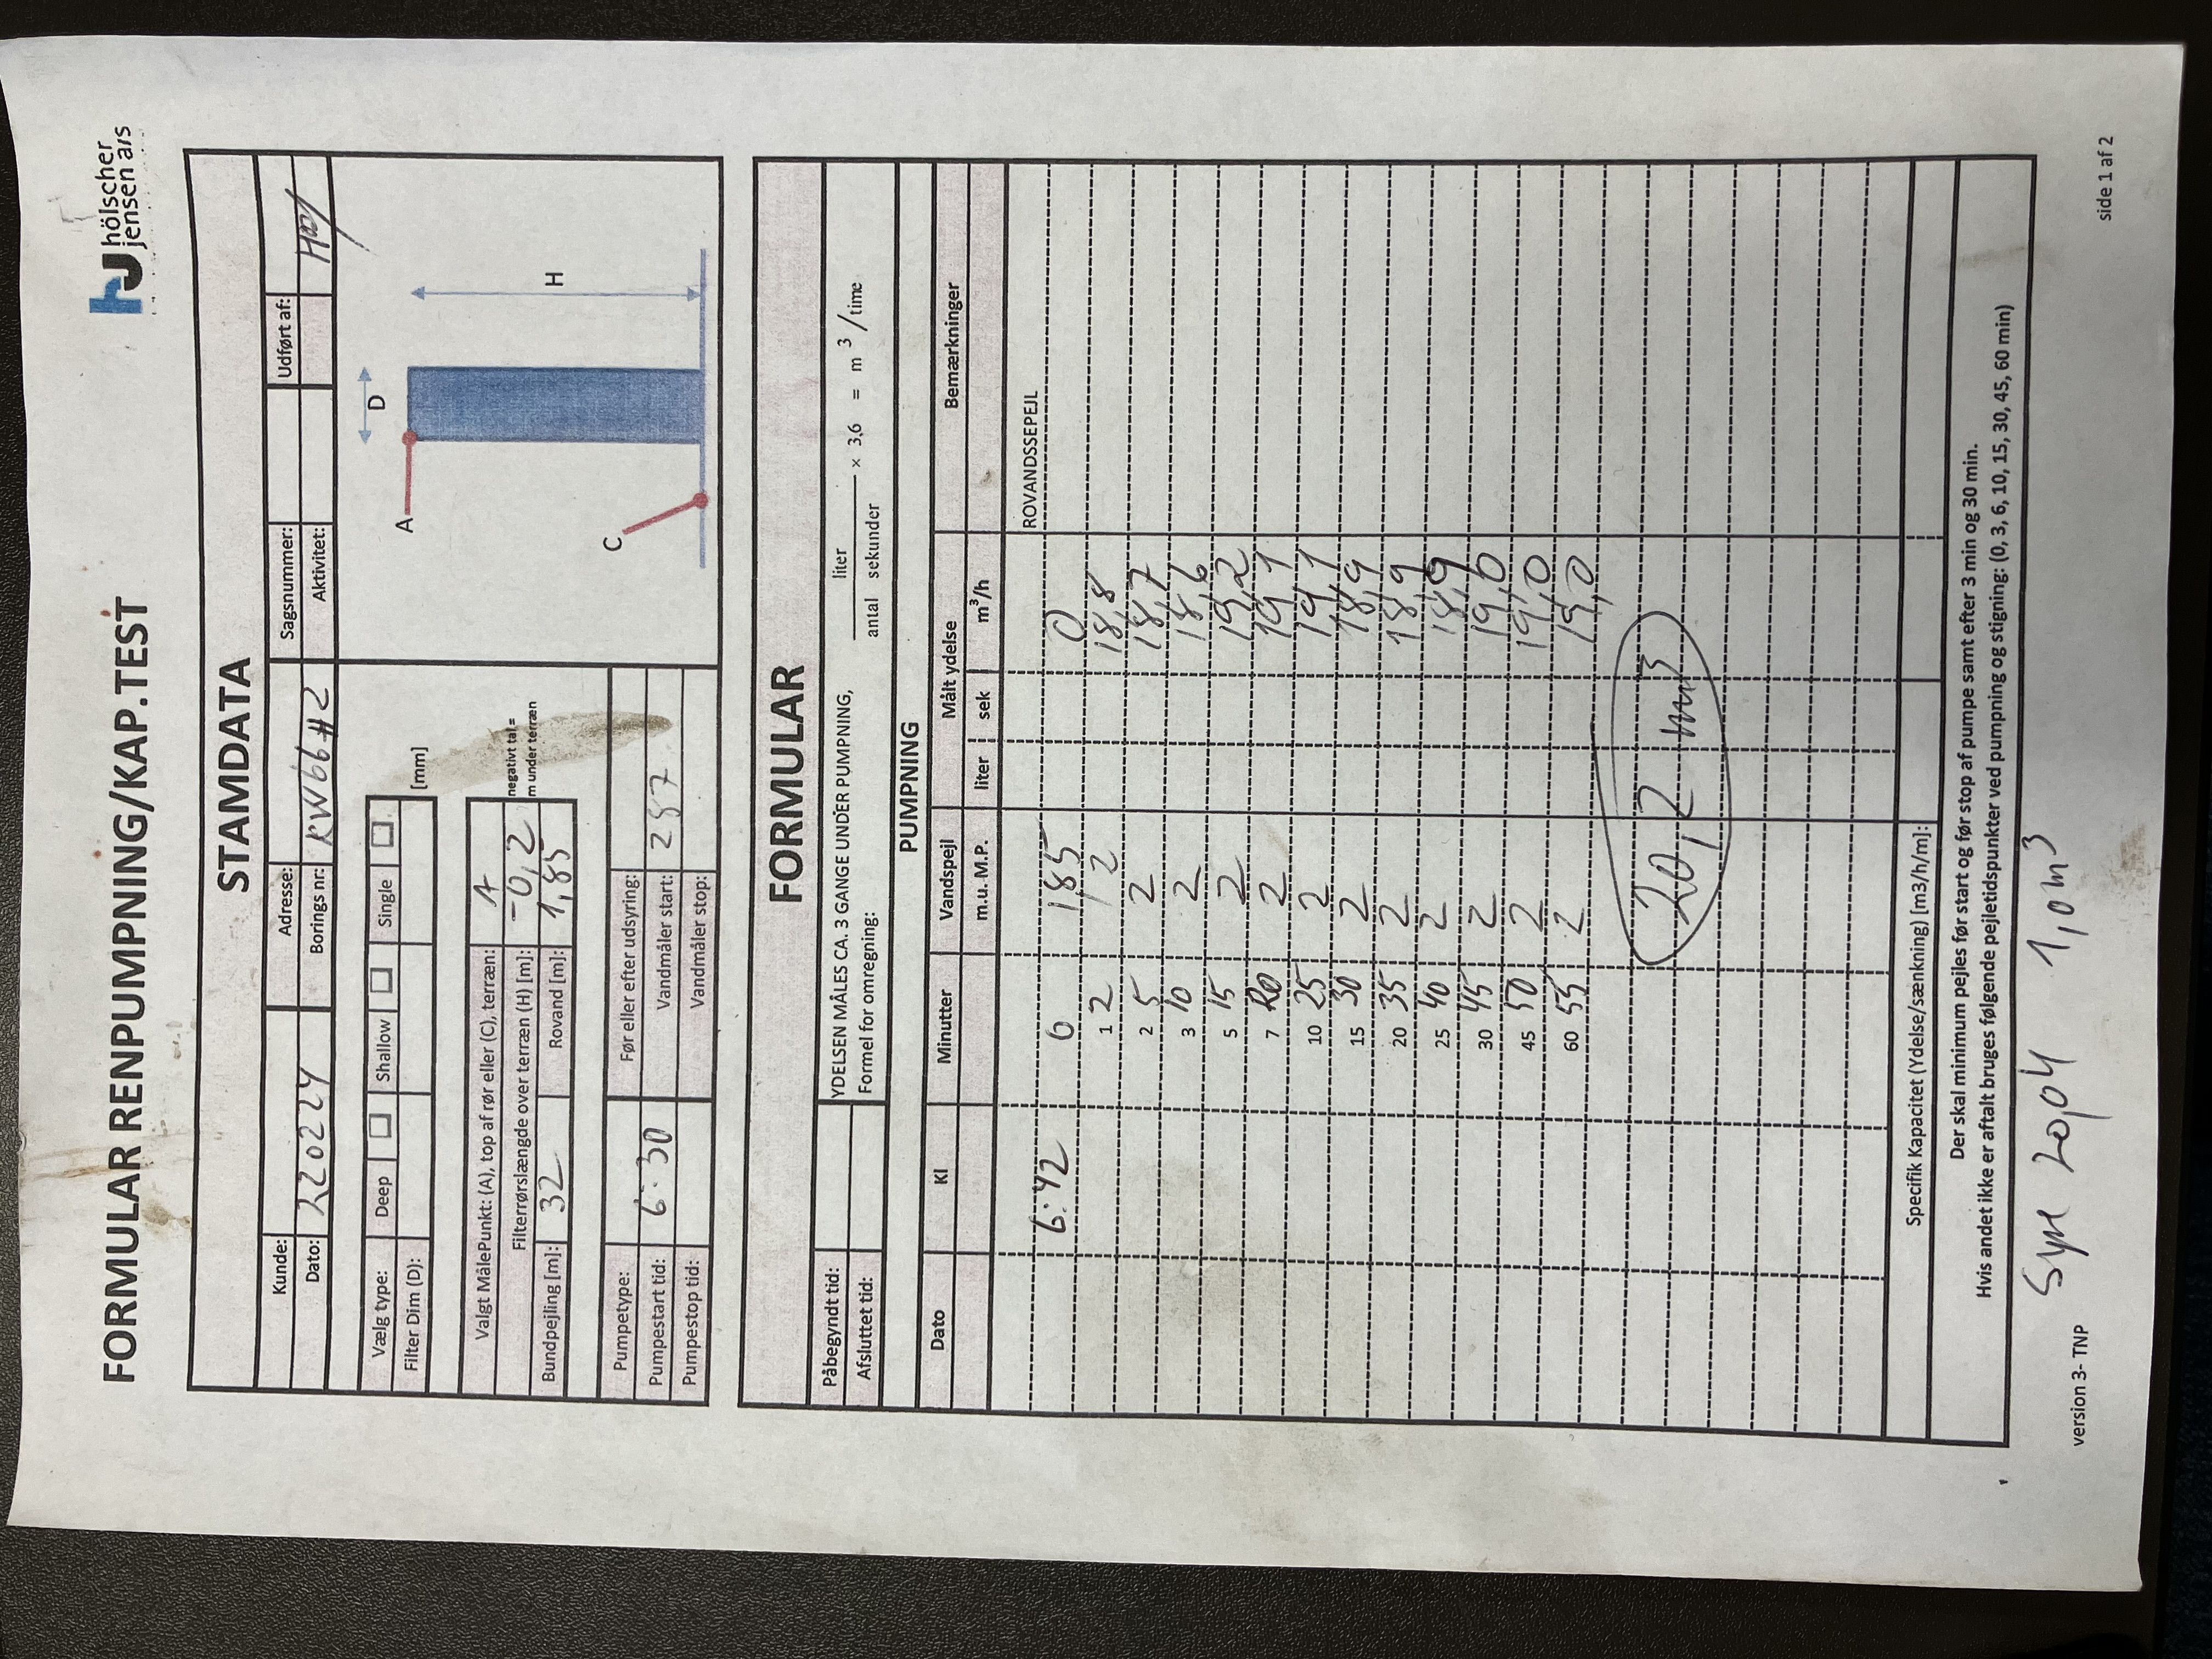 FORMULAR RENPUMPNING/KAP.TEST
hölscher
jensen a/s
STAMDATA
Kunde: Adresse: Sagsnummer: Udført af:
Dato: 220224 Borings nr: KW66#2 Aktivitet:
Vælg type: Deep Shallow Single
Filter Dim (D): [mm]
Valgt MålePunkt: (A), top af rør eller (C), terræn: A
Filterrørslængde over terræn (H) [m]: -0,2 negativt tal = m under terræn
Bundpejling [m]: 32 Rovand [m]: 1,85
Pumpetype: Før eller efter udsyring:
Pumpestart tid: 6:30 Vandmåler start: 287
Pumpestop tid: Vandmåler stop:
D
A
H
C
FORMULAR
Påbegyndt tid: YDELSEN MÅLES CA. 3 GANGE UNDER PUMPNING,
Afsluttet tid: Formel for omregning: liter / antal sekunder × 3,6 = m 3 / time
PUMPNING
Dato Kl Minutter Vandspejl Målt ydelse Bemærkninger
m.u. M.P. liter sek m3/h
ROVANDSSEPEJL
6:42 0 1,85 0
1 2 2 18,8
2 5 2 18,7
3 10 2 18,6
5 15 2 19,2
7 20 2 19,1
10 25 2 19,1
15 30 2 18,9
20 35 2 18,9
25 40 2 18,9
30 45 2 19,0
45 50 2 19,0
60 55 2 19,0
20,2 m3
Specifik Kapacitet (Ydelse/sænkning) [m3/h/m]:
Der skal minimum pejles før start og før stop af pumpe samt efter 3 min og 30 min.
Hvis andet ikke er aftalt bruges følgende pejletidspunkter ved pumpning og stigning: (0, 3, 6, 10, 15, 30, 45, 60 min)
Syre 20,04 1,0m3
version 3- TNP
side 1 af 2